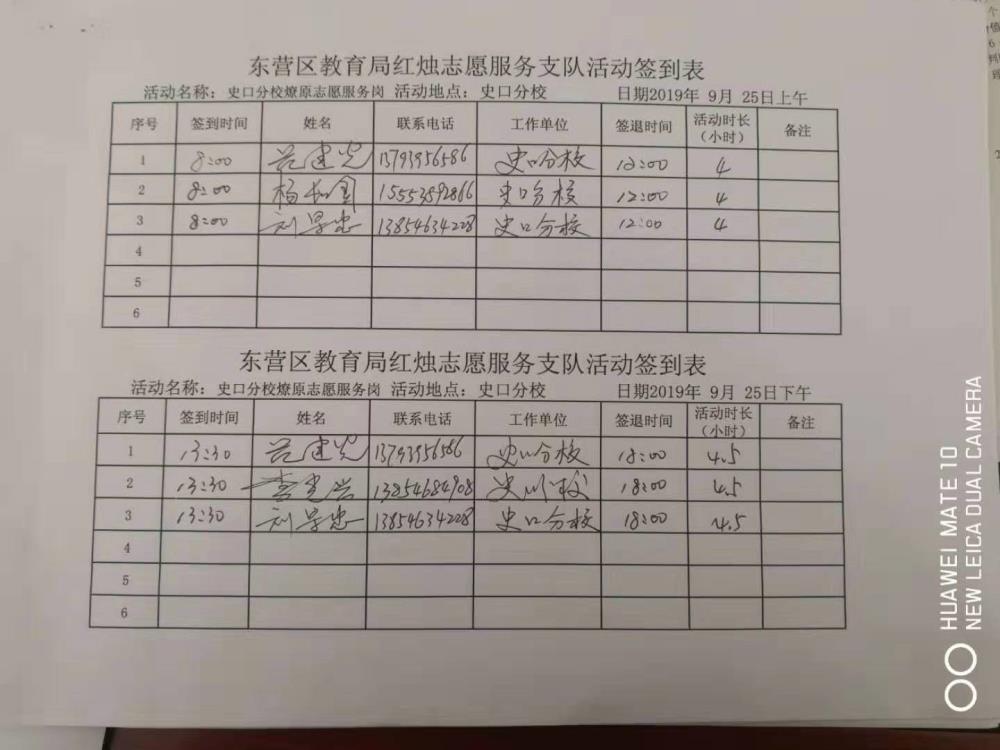 东营区教育局红烛志愿服务支队活动签到表
活动名称：史口分校燎原志愿服务岗 活动地点：史口分校 日期2019年 9月 25日上午
序号 签到时间 姓名 联系电话 工作单位 签退时间 活动时长（小时） 备注
1 8:00 建光 13793956586 史口分校 12:00 4
2 8:00 杨 15553592866 史口分校 12:00 4
3 8:00 刘景忠 13854634228 史口分校 12:00 4
4
5
6
东营区教育局红烛志愿服务支队活动签到表
活动名称：史口分校燎原志愿服务岗 活动地点：史口分校 日期2019年 9月 25日下午
序号 签到时间 姓名 联系电话 工作单位 签退时间 活动时长（小时） 备注
1 13:30 建光 13793956586 史口分校 18:00 4.5
2 13:30 李 13854684908 史口分校 18:00 4.5
3 13:30 刘景忠 13854634228 史口分校 18:00 4.5
4
5
6
HUAWEI MATE 10
NEW LEICA DUAL CAMERA